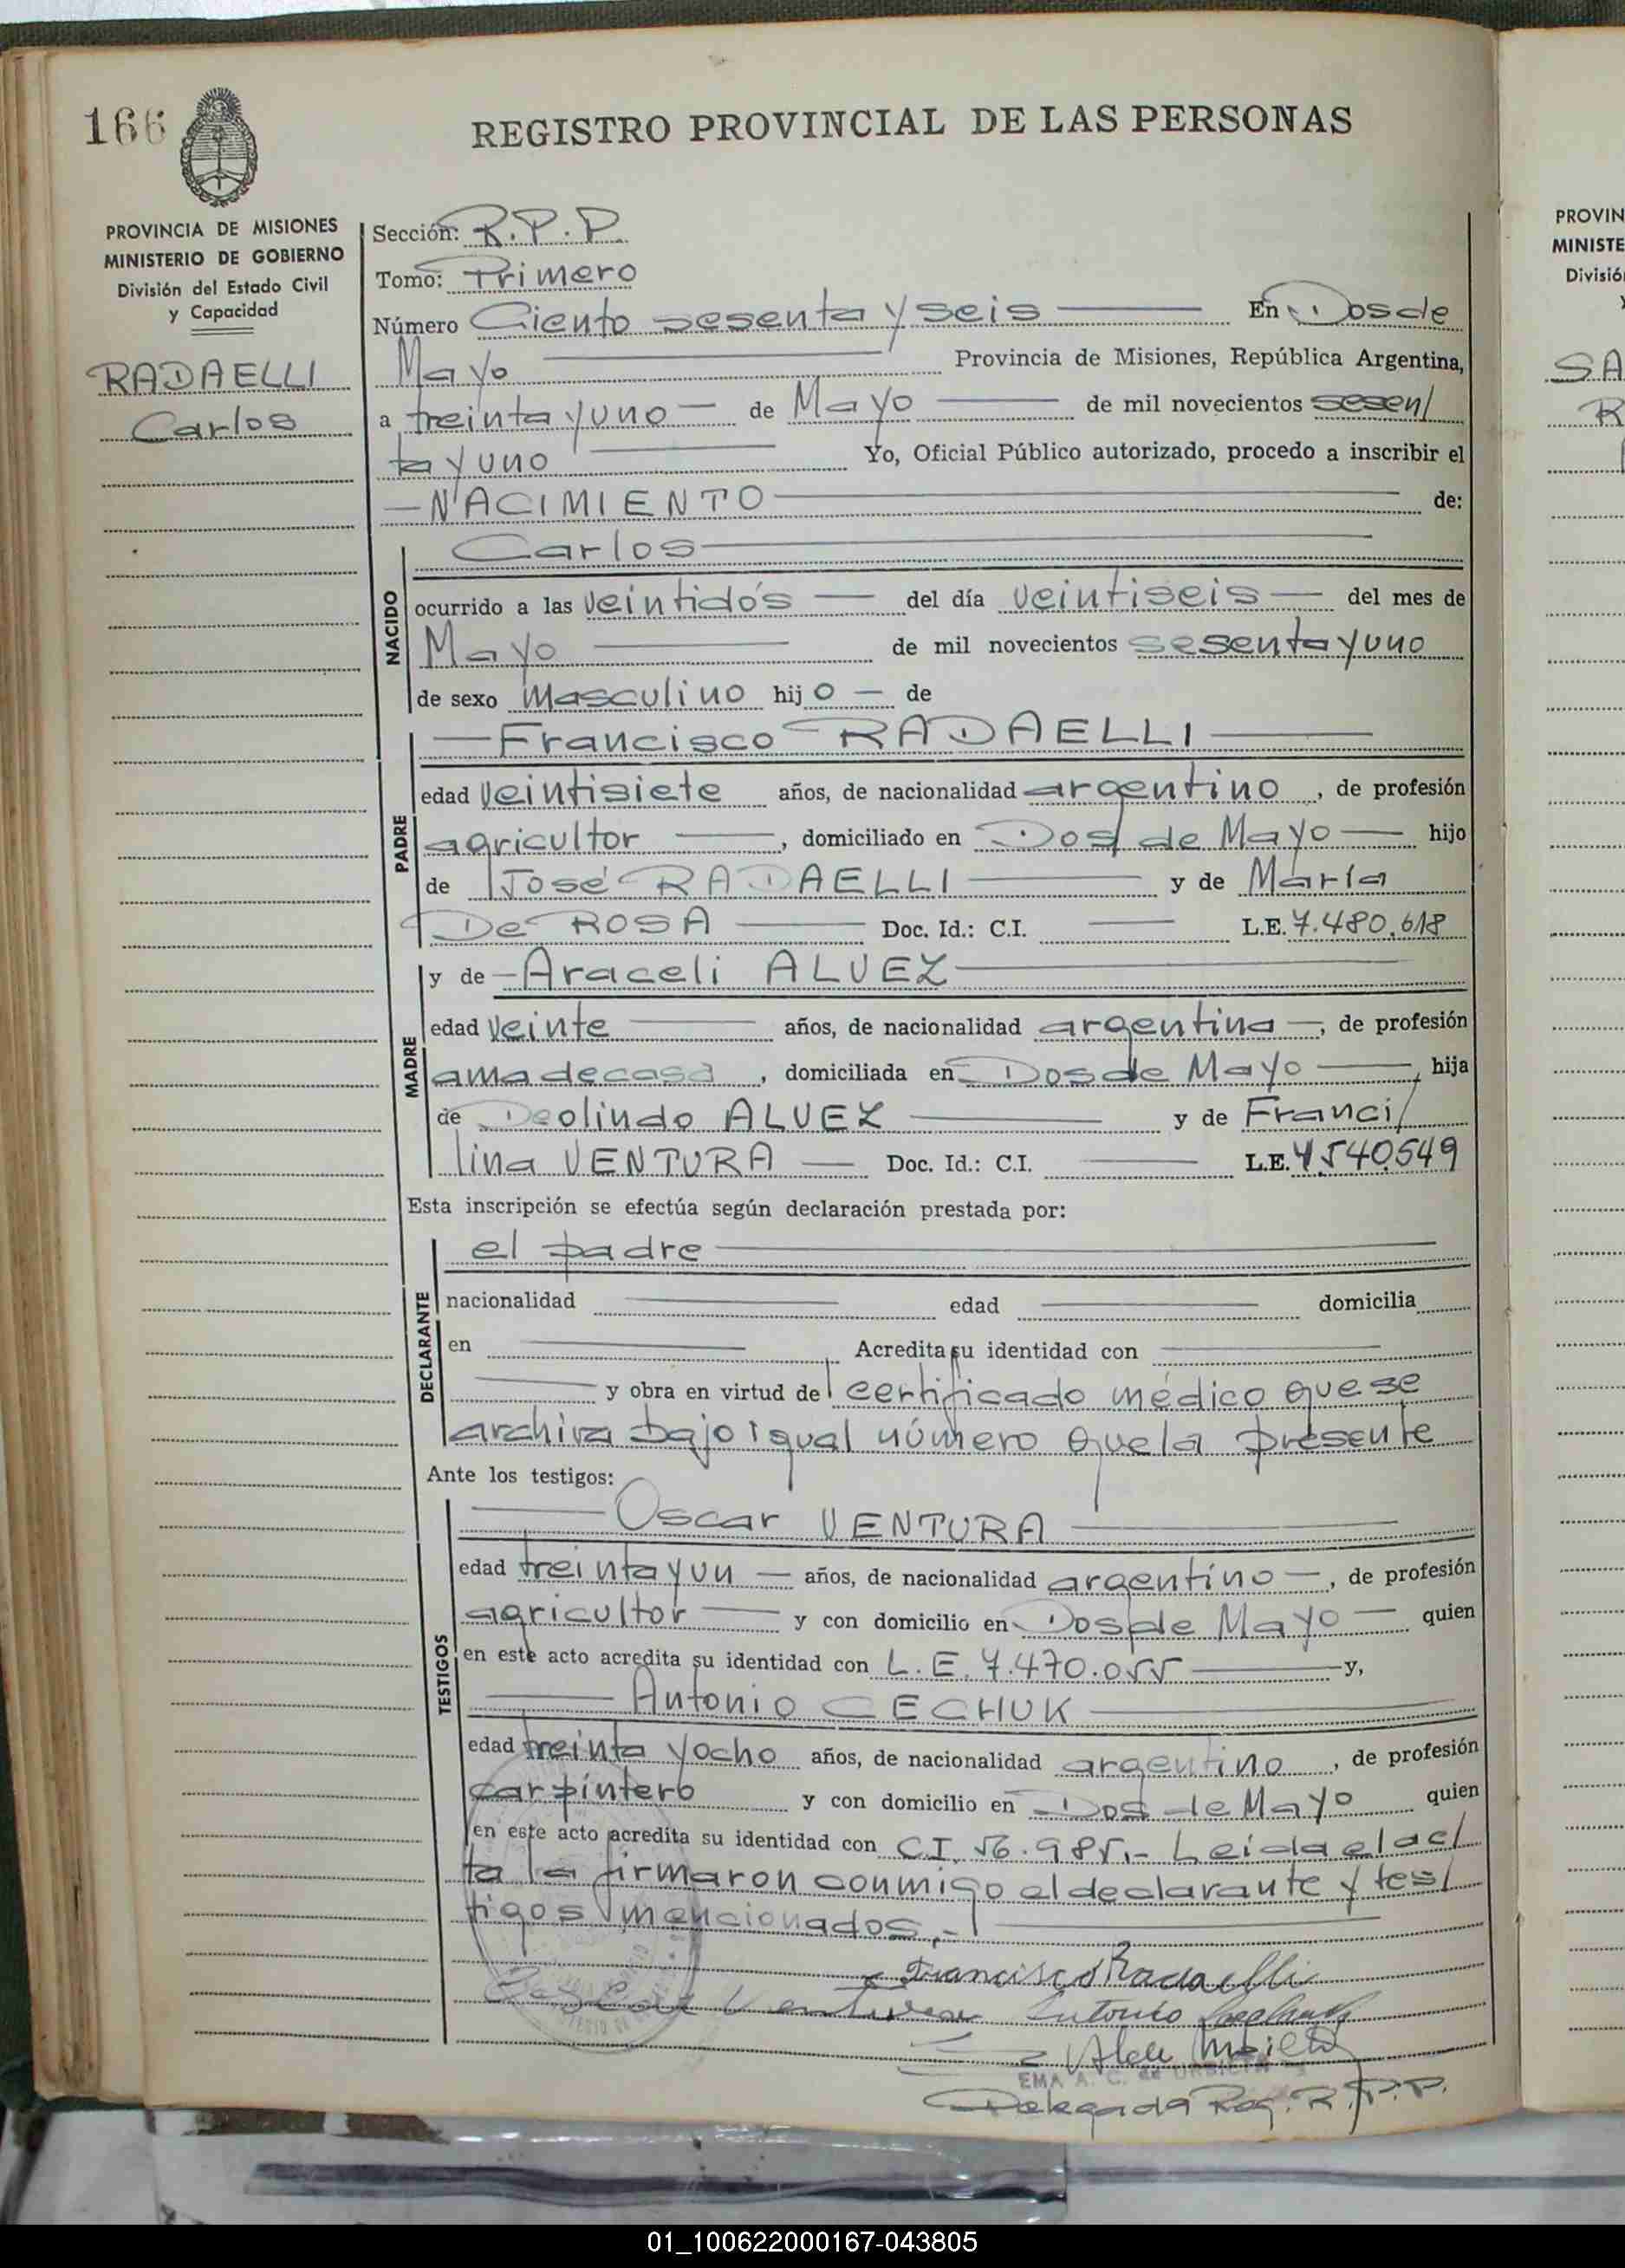 166
REGISTRO PROVINCIAL DE LAS PERSONAS
PROVINCIA DE MISIONES
MINISTERIO DE GOBIERNO
División del Estado Civil
y Capacidad
RADAELLI
Carlos
Sección: R.P.P.
Tomo: Primero
Número Ciento sesenta y seis En Dos de
Mayo Provincia de Misiones, República Argentina,
a treinta y uno de Mayo de mil novecientos sesen/
ta y uno Yo, Oficial Público autorizado, procedo a inscribir el
NACIMIENTO de:
NACIDO
Carlos
ocurrido a las veintidós del día veintiseis del mes de
Mayo de mil novecientos sesenta y uno
de sexo masculino hijo de
PADRE
Francisco RADAELLI
edad veintisiete años, de nacionalidad argentino, de profesión
agricultor, domiciliado en Dos de Mayo hijo
de José RADAELLI y de María
De ROSA Doc. Id.: C.I. L.E. 7.480.618
MADRE
y de Araceli ALVEZ
edad veinte años, de nacionalidad argentina, de profesión
ama de casa, domiciliada en Dos de Mayo, hija
de Deolindo ALVEZ y de Franci/
lina VENTURA Doc. Id.: C.I. L.E. 4540549
Esta inscripción se efectúa según declaración prestada por:
DECLARANTE
el padre
nacionalidad edad domicilia
en Acredita su identidad con
y obra en virtud del certificado médico que se
archiva bajo igual número que la presente
Ante los testigos:
TESTIGOS
Oscar VENTURA
edad treinta y un años, de nacionalidad argentino, de profesión
agricultor y con domicilio en Dos de Mayo quien
en este acto acredita su identidad con L.E. 7.470.055 y,
Antonio CECHUK
edad treinta y ocho años, de nacionalidad argentino, de profesión
carpintero y con domicilio en Dos de Mayo quien
en este acto acredita su identidad con C.I. 56.985.- Leida el ac/
ta la firmaron conmigo el declarante y tes/
tigos mencionados.-
Francisco Radaelli
Oscar Ventura Antonio
EMA A. C. de
Delegada Reg. R.P.P.
PROVIN
MINISTE
Divisió
y
SA
R
01_100622000167-043805